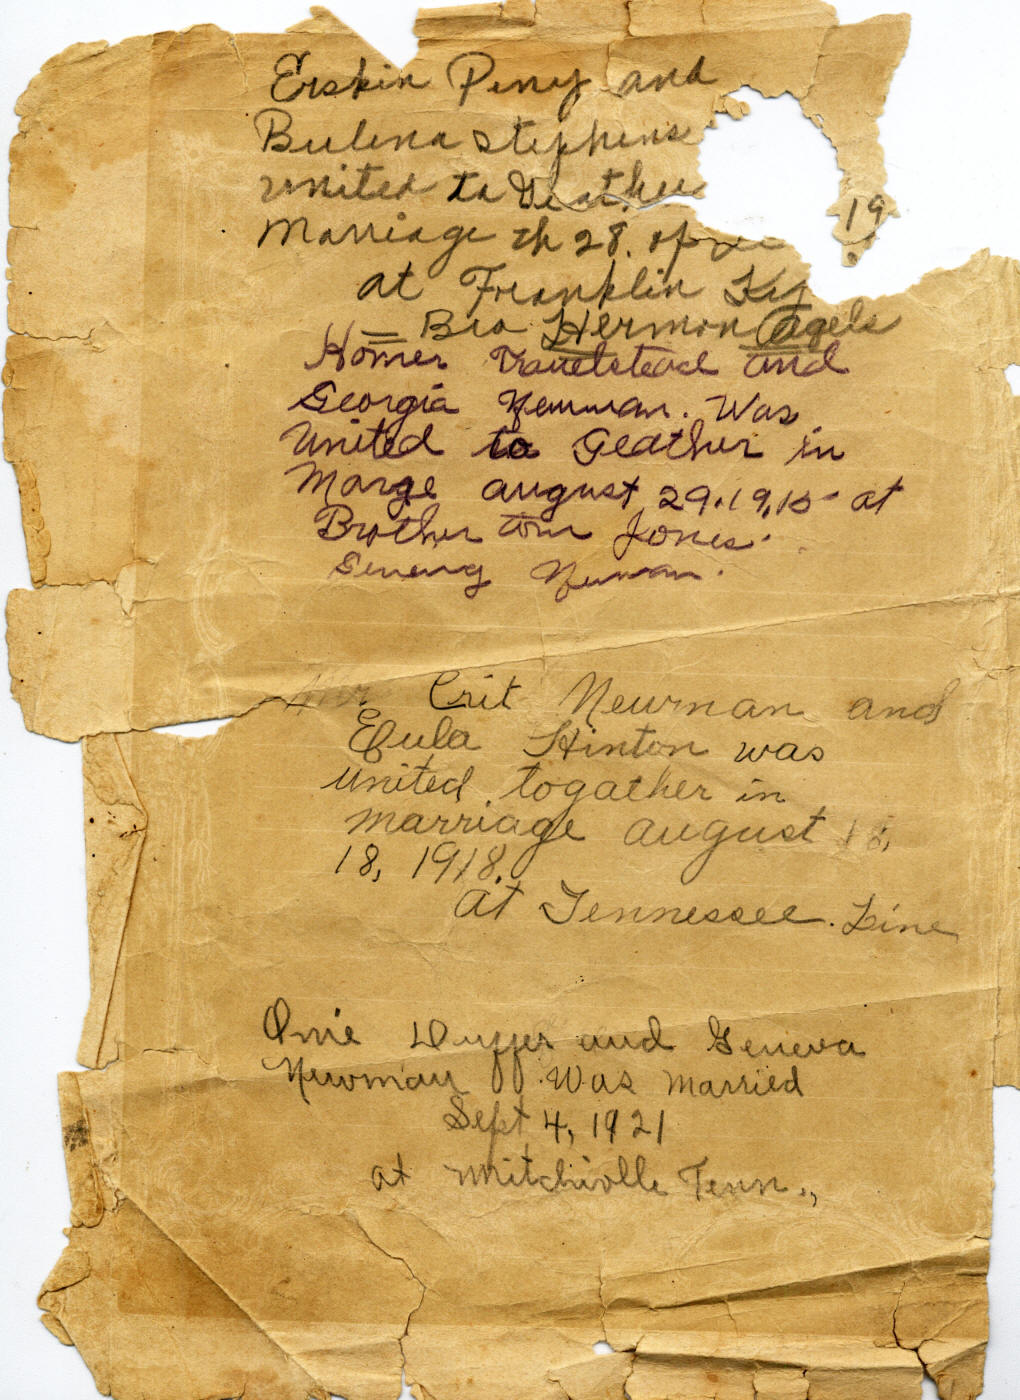 Erskin Perry and
Bulena Stephens
united to Geather 19
Marriage th 28. of
at Franklin Ky
= Bro Hermon
Homer Travelstead and
Georgia Newman. Was
United to Geather in
Marge august 29.19,15 at
Brother tom Jones.
Newman.
Crit Newman and
Eula Hinton was
united togather in
marriage august 18,
18, 1918.
At Tennessee. Line
Onie Duffer and Geneva
Newman Was Married
Sept 4, 1921
at Mitchville Tenn.,